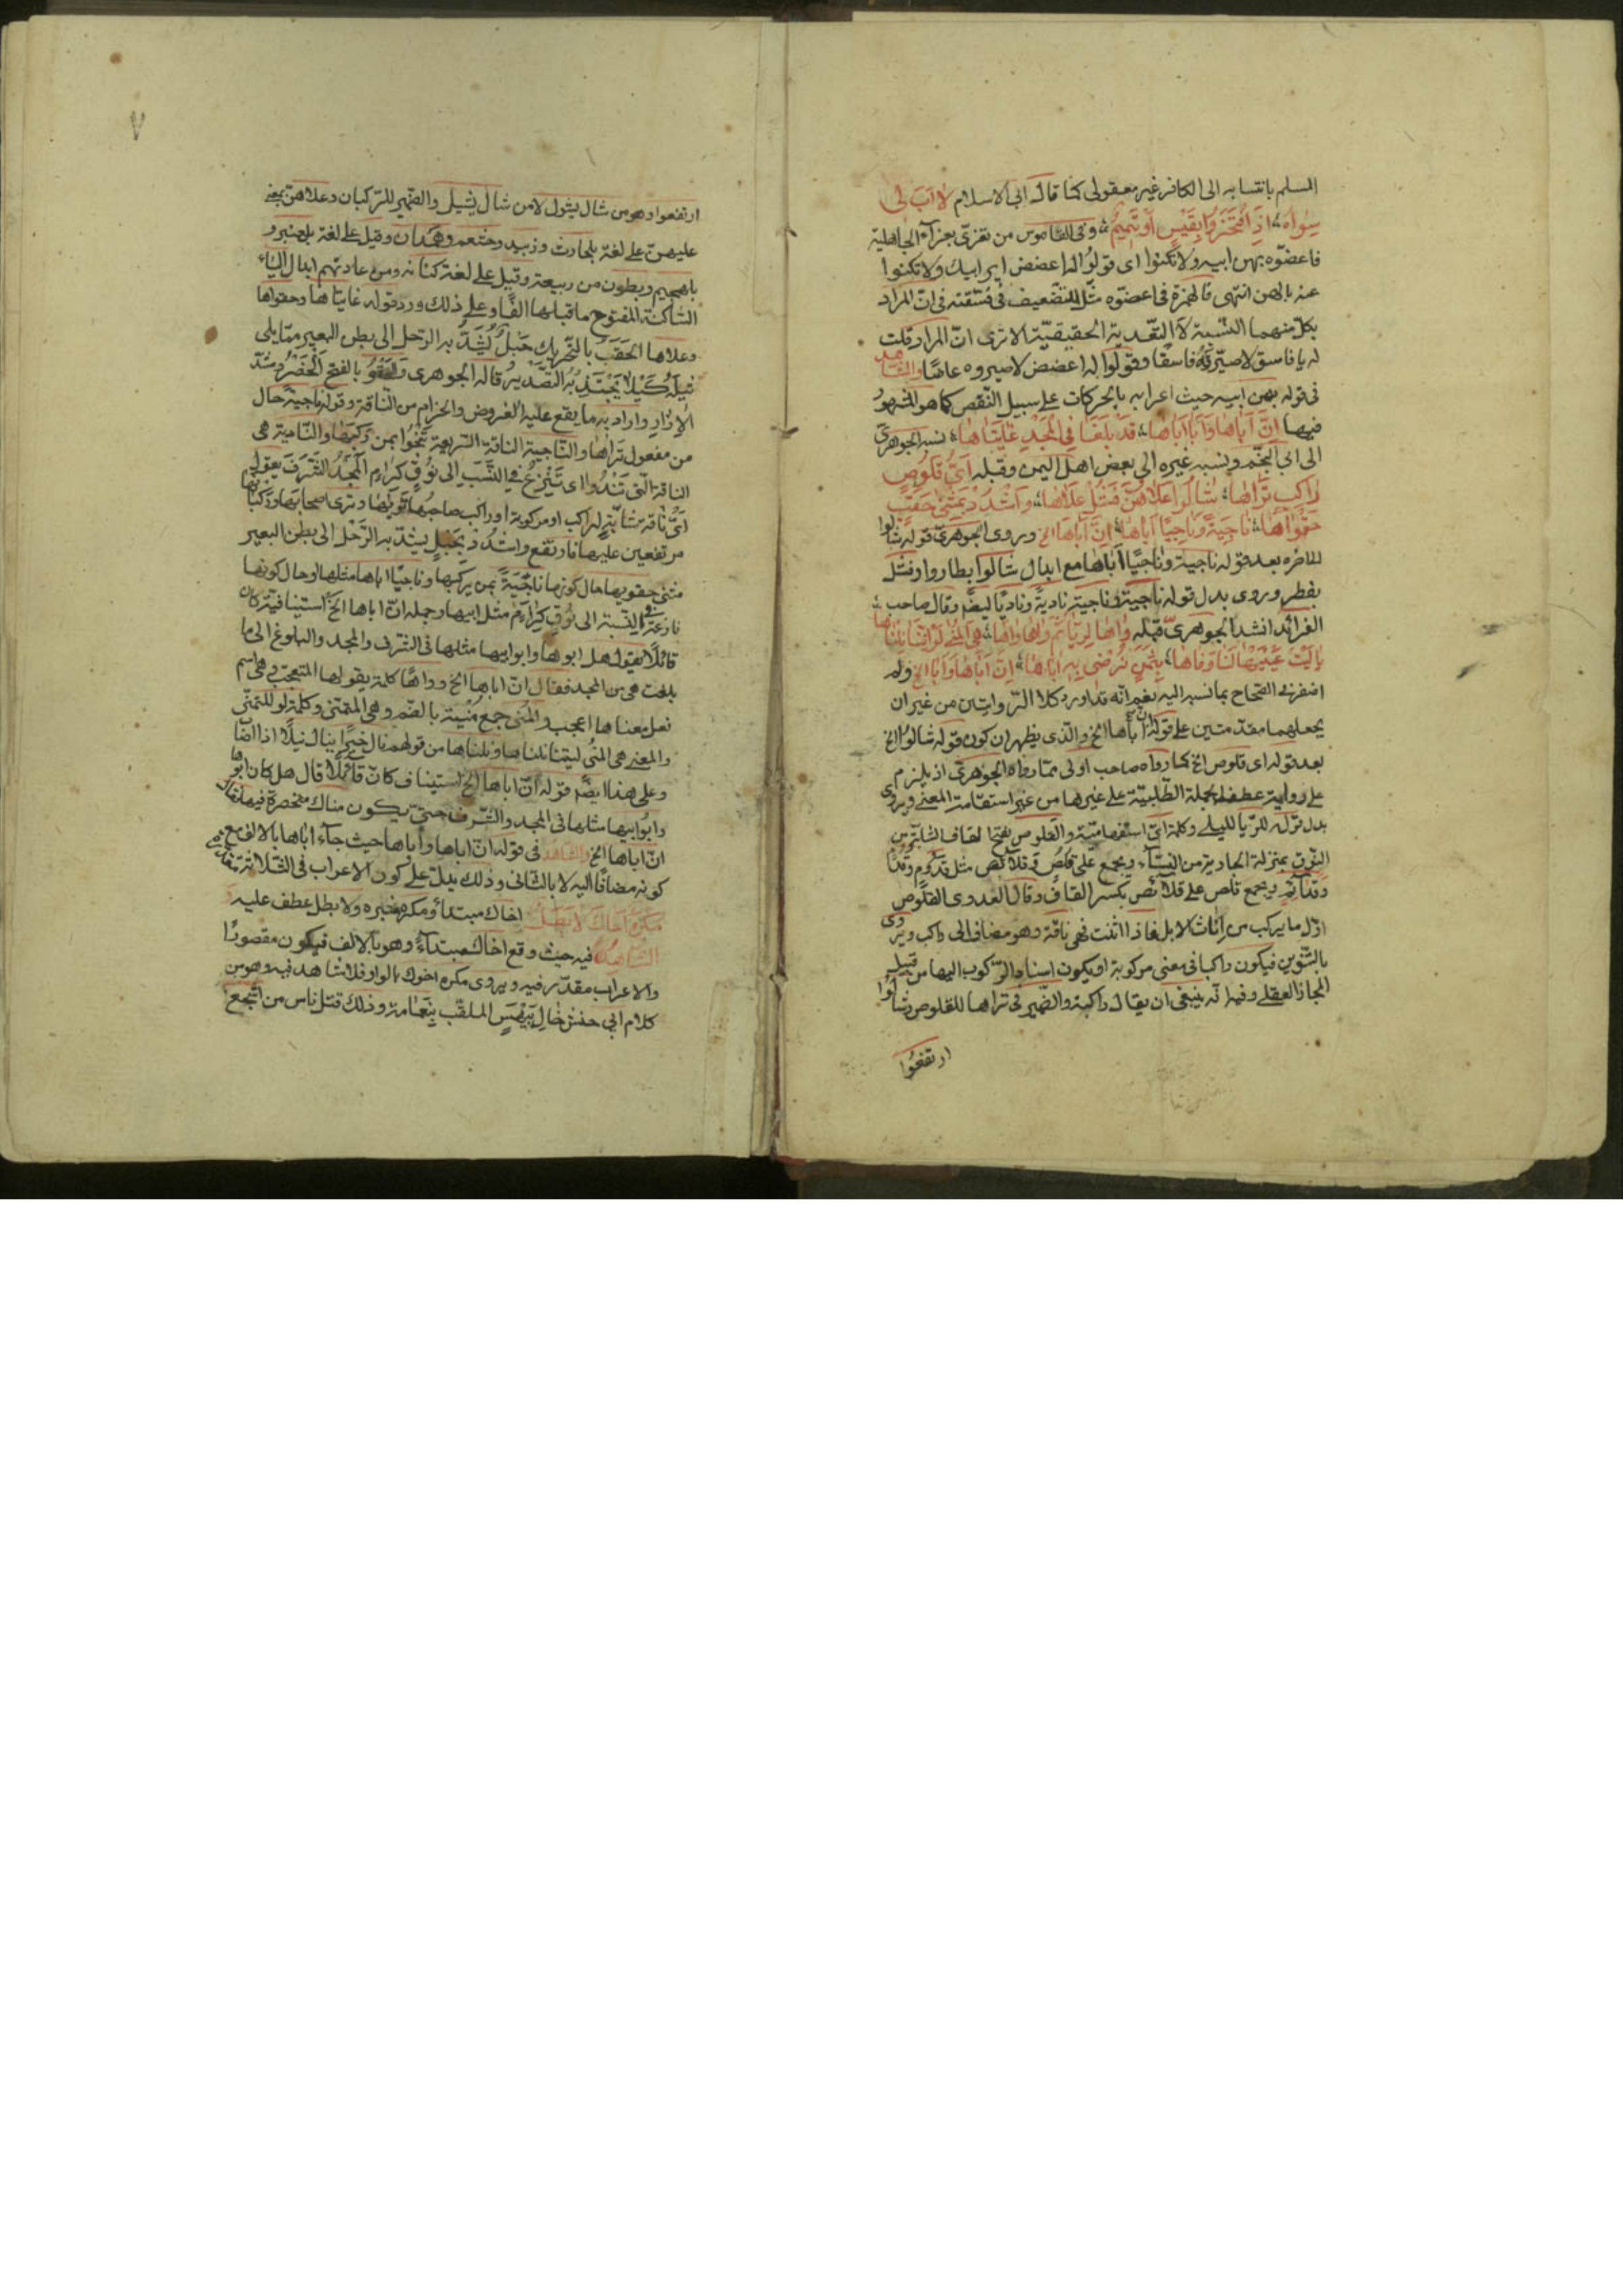 المسلم بانتسابه الى الكافر غير معقولى كنا قال ابى الاسلام لا اب لى
سواه اذا افتخروا بقيس او تميم وفى القاموس من تعزى بعزاء الجاهلية
فاعضوه بهن ابيه ولا تكنوا اى قولوا له اعضض اير ابيك ولا تكنوا
عنه بالهن انتهى فالهمزة فى اعضوه مثل التضعيف فى فسقته فى ان المراد
بكل منهما النسبة لا التعدية الحقيقية الا ترى ان المراد قلت
له يا فاسق لا صيرته فاسقا وقولوا له اعضض لا صيروه عاضا والشاهد
فى قوله بهن ابيه حيث اعرابه بالحركات على سبيل النقص كما هو المشهور
فيها ان اباها وابا اباها قد بلغا فى المجد غايتاها نسبه الجوهرى
الى ابى النجم ونسبه غيره الى بعض اهل اليمن وقبله اى قلوص
راكب تراها شالوا علاهن فشل علاها واشدد بمثنى حقب
حقواها ناجية وناجيا اباها ان اباها الخ وروى الجوهرى قوله شالوا
الاخره بعد قوله ناجية وناجيا اباها مع ابدال شالوا بطاروا وفشل
بفطر وروى بدل قوله ناجية وناجية نادية وناديا ايضا وقال صاحب
الفرائد انشد الجوهرى قبله واها لريا ثم واها واها هى المنى لو اننا نلناها
يا ليت عينيها لنا وفاها بثمن نرضى به اباها ان اباها وابا الخ ولم
اظفر فى الصحاح بما نسبه اليه نعم انه قد اورد كلا الروايتين من غير ان
يجعلهما مقدمتين على قوله ان اباها الخ والذى يظهر ان كون قوله شالوا الخ
بعد قوله اى قلوص الخ كما رواه صاحب اولى مما رواه الجوهرى اذ يلزم
على رواية عطف الجملة الطلبية على غيرها من غير استقامة المعنى ويروى
بدل قوله للريا لليلى وكلمة اى استفهامية والقلوص بفتح القاف الشابة من
النوق بمنزلة الجارية من النساء ويجمع على قلص وقلائص مثل قدوم وقدم
وقدائم ويجمع قلص على قلائص بكسر القاف وقال العدوى القلوص
اول ما يركب من اناث الابل فاذا اثنت فهى ناقة وهو مضاف الى راكب ويروى
بالتنوين فيكون راكبا فى معنى مركوبة او يكون اسناد الركوب اليها من قبيل
المجاز العقلى وفيه انه ينبغى ان يقال راكبة والضمير فى تراها للقلوص وشالوا
ارتفعوا
٧
ارتفعوا وهو من شال يشول لا من شال يشيل والضمير للركبان وعلاهن بمعنى
عليهن على لغة بلحارث وزبيد وخثعم وهمدان وقيل على لغة بلعنبر و
بلهجيم وبطون من ربيعة وقيل على لغة كنانة ومن عادتهم ابدال الياء
الساكنة المفتوح ما قبلها الفا وعلى ذلك ورد قوله غايتاها وحقواها
وعلاها الحقب بالتحريك حبل يشد به الرحل الى بطن البعير مما يلى
ثيله كيلا يجتذبه التصدير قاله الجوهرى والحقو بالفتح الخصر وشد
الازار واراد به ما يقع عليه الغروض والحزام من الناقة وقوله ناجية حال
من مفعول تراها والناجية الناقة السريعة تنجوا بمن ركبها والنادية هى
الناقة التى تندوا اى تنزع فى النسب الى نوق كرام المجد الشرف يقول
اى ناقة شابة لراكب او مركوبة او راكب صاحبها تراها وترى اصحابها وركبانها
مرتفعين عليها فارتفع واشدد بحبل يشد به الرحل الى بطن البعير
مثنى حقويها حال كونها ناجية بمن يركبها وناجيا اباها مثلها او حال كونها
نازعة فى النسبة الى نوق كرائم مثل ابيها وجملة ان اباها الخ استينافية كان
قائلا يقول هل ابوها وابو ابيها مثلها فى الشرف والمجد والبلوغ الى ما
بلغت هى من المجد فقال ان اباها الخ وواها كلمة يقولها المتعجب وهى اسم
فعل معناها اعجب والمنى جمع منية بالضم وهى المتمنى وكلمة لو للتمنى
والمعنى هى المنى ليتنا نلناها ونلناها من قولهم نال خيرا ينال نيلا اذا اصاب
وعلى هذا ايضا قوله ان اباها الخ استيناف كان قائلا قال هل كان ابوها
وابو ابيها مثلها فى المجد والشرف حتى يكون مناك منحصرة فيها فقال
ان اباها الخ والشاهد فى قوله ان اباها وابا اباها حيث جاء اباها بالالف مع
كونه مضافا اليه لا بالثانى وذلك يدل على كون الاعراب فى الثلاثة
مكره اخاك لا بطل اخاك مبتدأ ومكره خبره ولا بطل عطف عليه و
الشاهد فيه حيث وقع اخاك مبتدأ وهو بالالف فيكون مقصورا
والاعراب مقدر فيه ويروى مكره اخوك بالواو فلا شاهد فيه وهو من
كلام ابى حنش خال بيهس الملقب بنعامة وذلك قتل ناس من اشجع